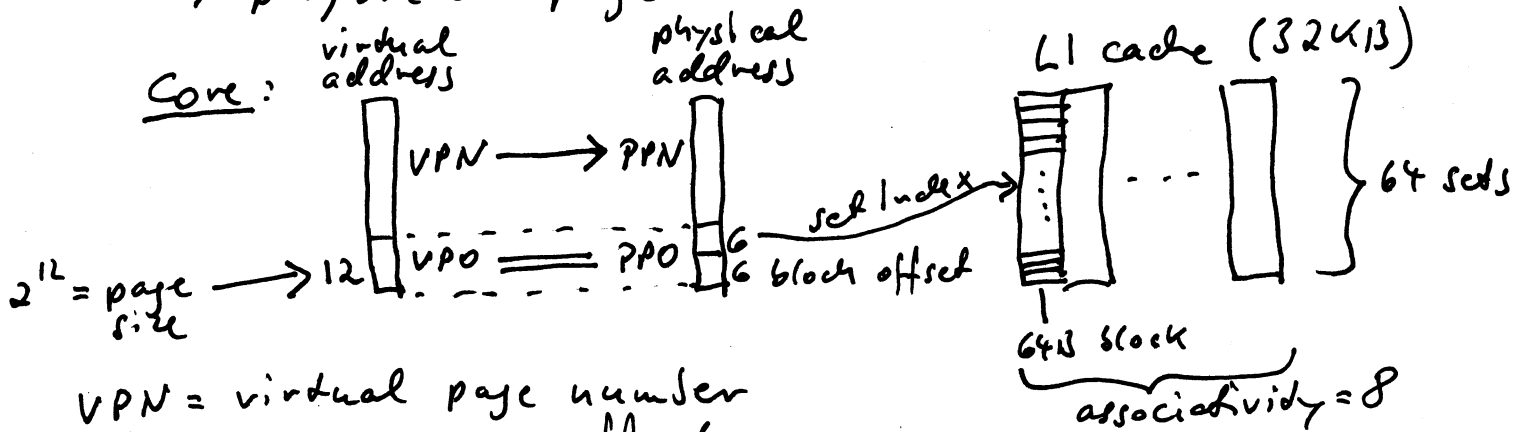 virtual address
physical address
L1 cache (32KB)
Core:
VPN
PPN
set index
64 sets
2^12 = page size
12
VPO
PPO
6
6 block offset
64B block
associativity = 8
VPN = virtual page number